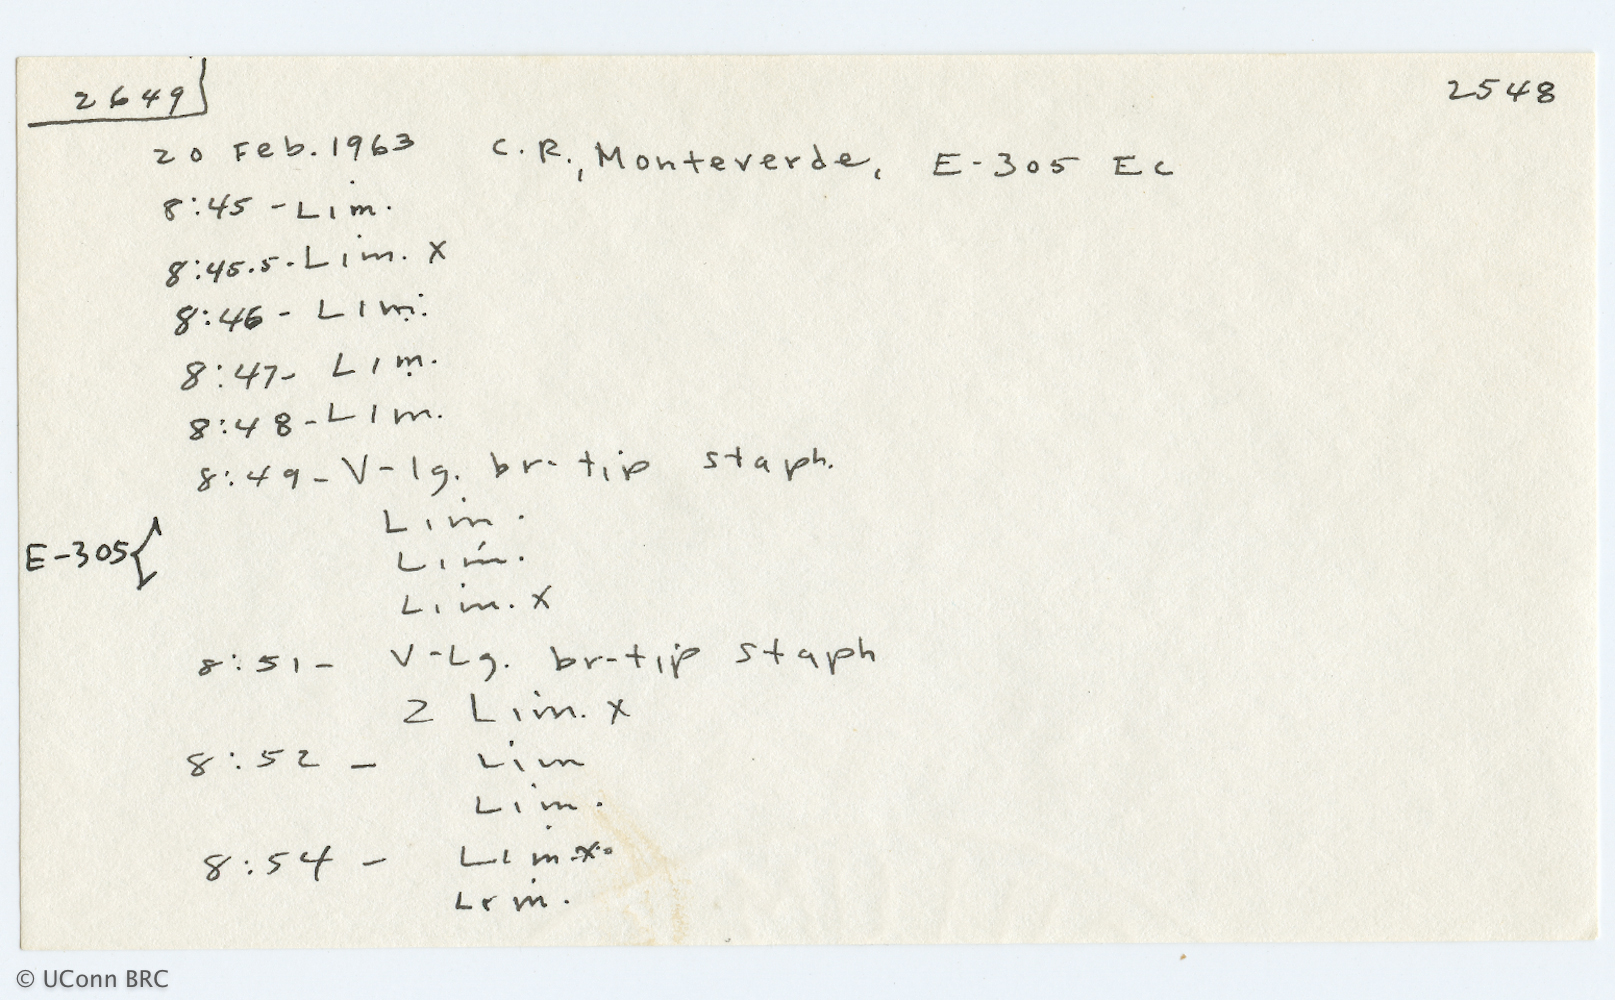 2649
2548
20 Feb. 1963 C.R., Monteverde, E-305 Ec
8:45 - Lim.
8:45.5. Lim. X
8:46 - Lim.
8:47 - Lim.
8:48 - Lim.
8:49 - V-lg. br-tip staph.
Lim.
E-305{ Lim.
Lim. X
8:51 - V-Lg. br-tip staph
2 Lim. X
8:52 - Lim
Lim.
8:54 - Lim X.
Lim.
© UConn BRC